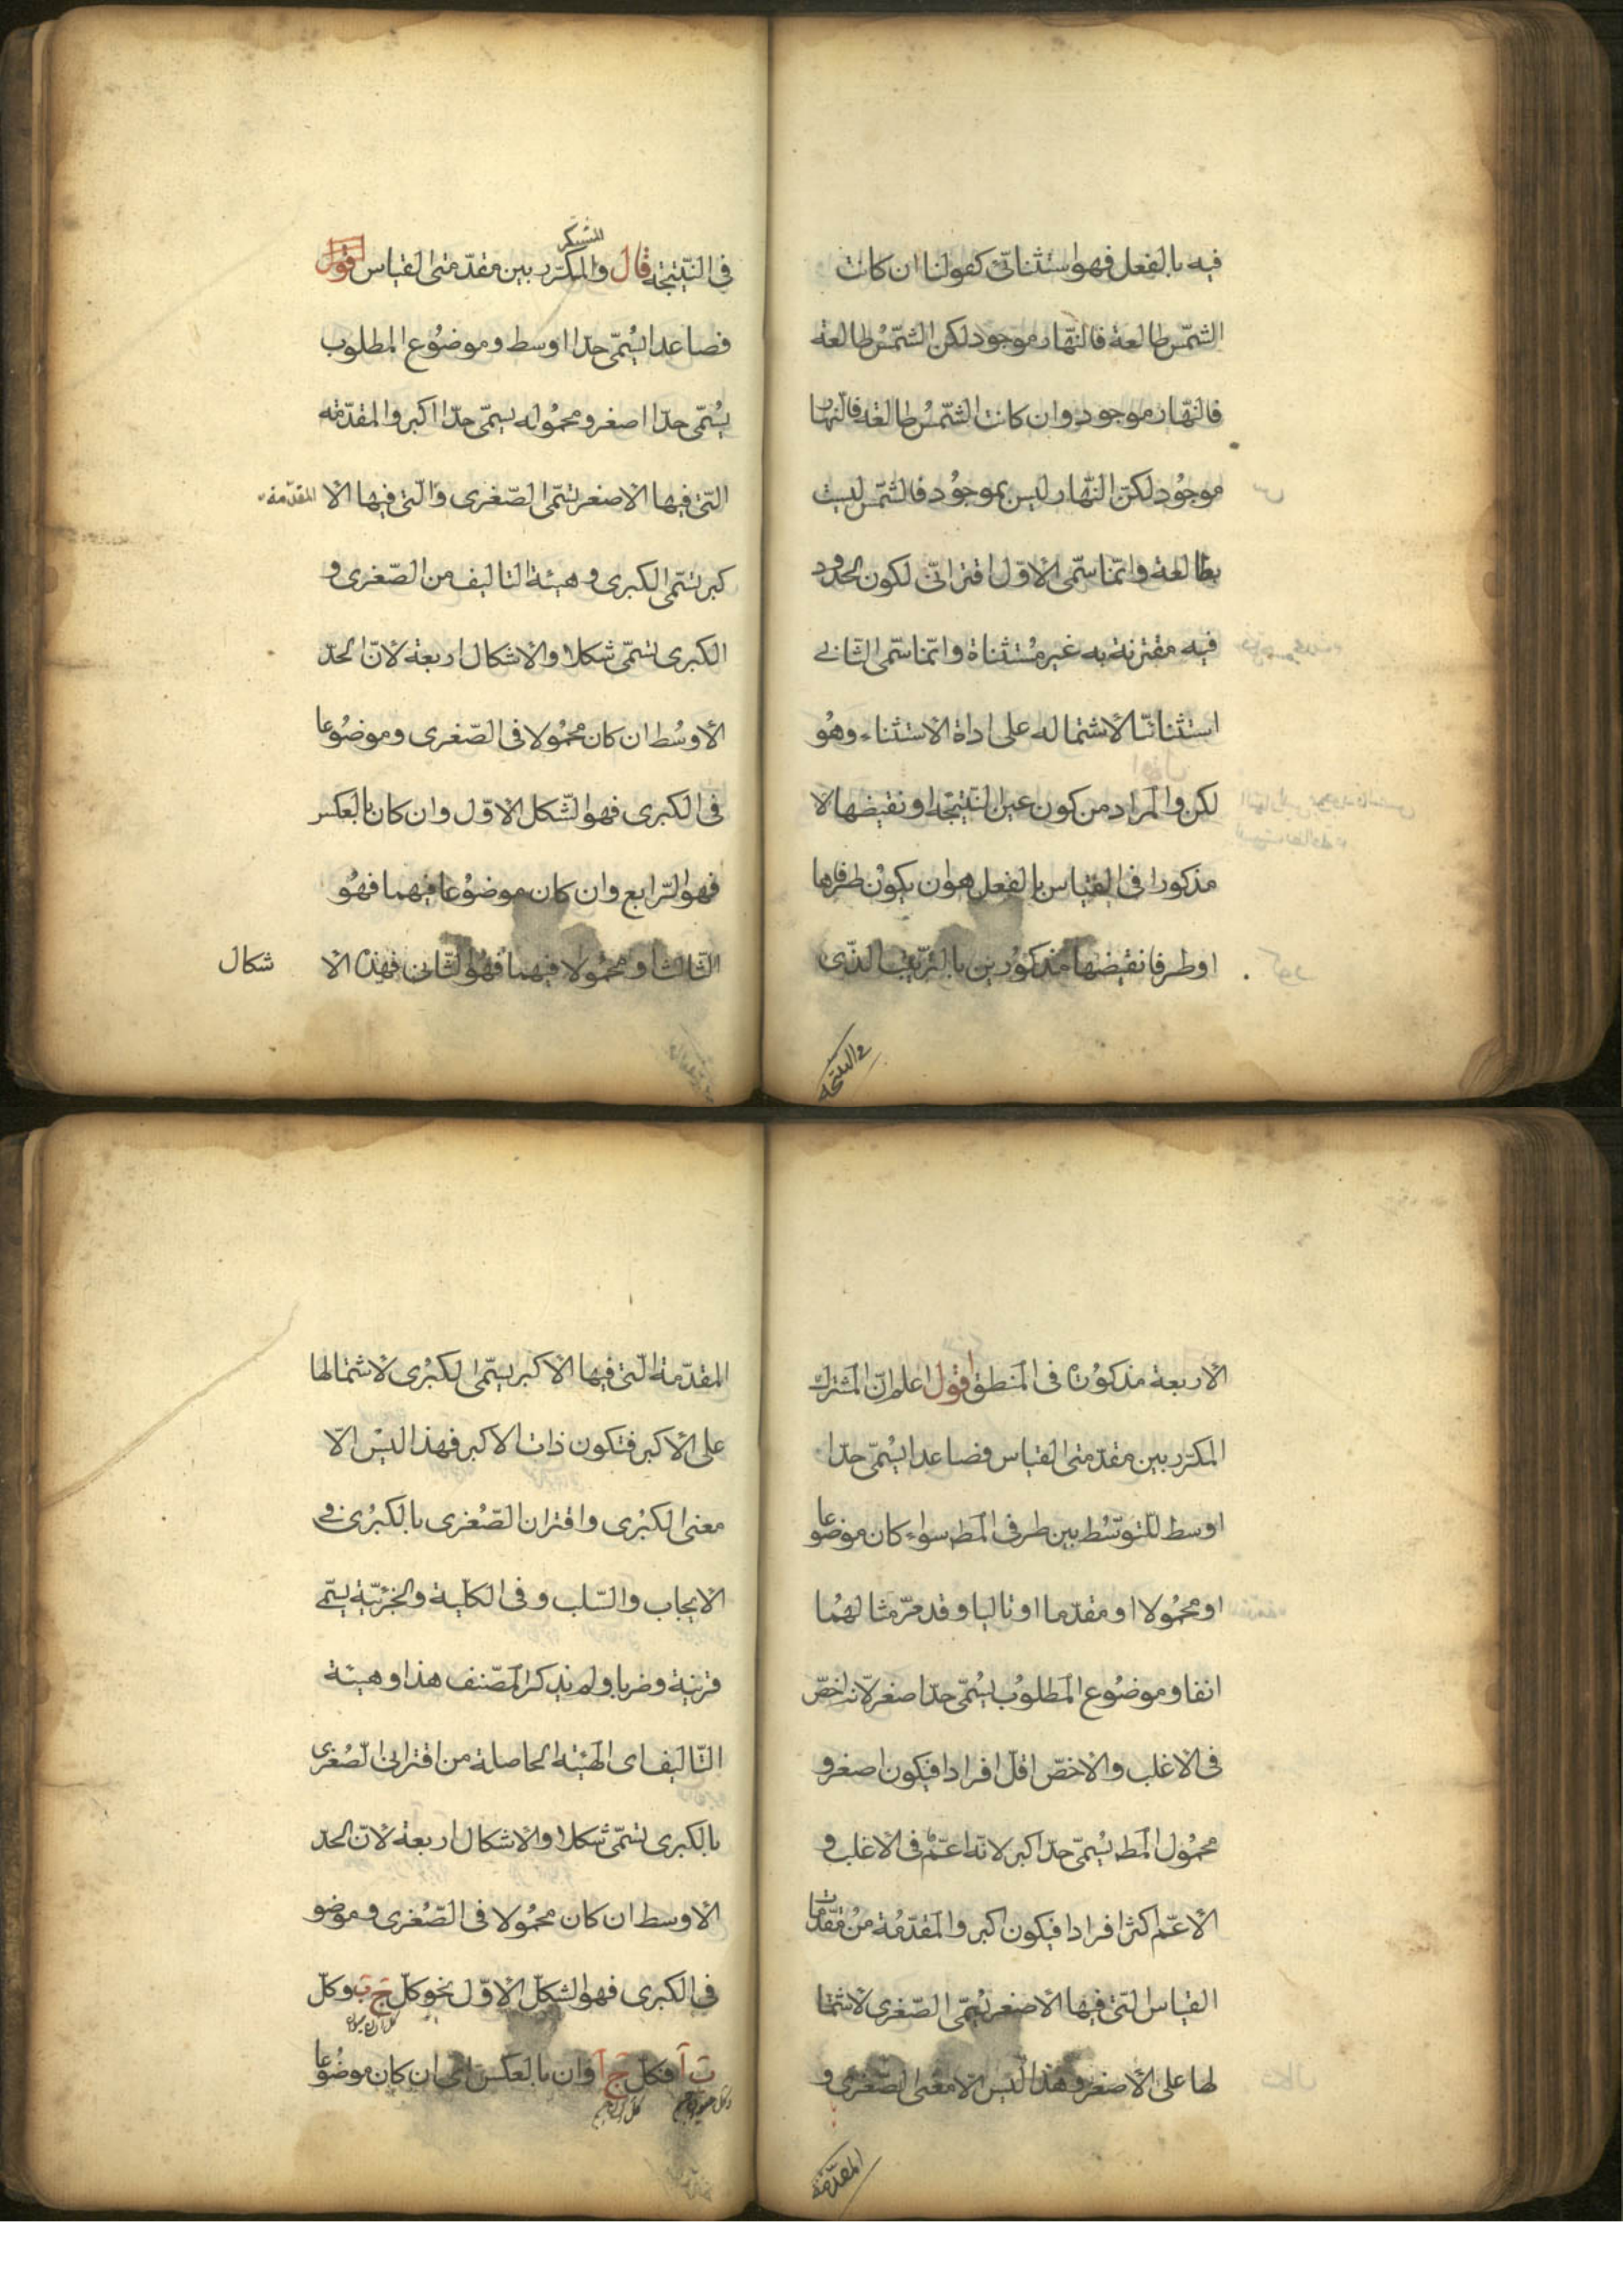 فيه بالفعل فهو استثنائى كقولنا ان كانت
الشمّس طالعة فالنهّار موجود لكن الشمّسُ طالعة
فالنهّار موجود وان كانت الشمّسُ طالعة فالنهار
موجُود لكنّ النّهار ليس بموجُود فالشمّس ليست
بطالعة وانمّا سمّى الاوّل اقترانىّ لكون الحدود
فيه مقترنة به غير مُستثناة وانمّا سمّى الثانى
استثنائيّا لاشتماله على اداة الاستثناء وهُو
لكن والمراد من كون عين النتيّجة او نقيضها لا
مذكورا فى القياس بالفعل هو ان يكوُن طرفاها
او طرفا نقيضها مذكوُرين بالترتيب الذّى
فى النتيجه
فى النتّيجة قال والمكرّر بين مقدّمتى القياس
المشترك
فصاعدا يسُمّى حدّا اوسط وموضُوع المطلوب
يسُمّى حدّا اصغر ومحمُوله يسمّى حدّا اكبر والمقدّمة
التّى فيها الاصغر تسّمى الصّغرى والتّى فيها الا
المقدّمة
كبر تسّمى الكبرى وهيئة التاليف من الصّغرى و
الكبرى تسمّى شكلا والاشكال اربعة لانّ الحدّ
الاوسُط ان كان محمُولا فى الصّغرى وموضُوعا
فى الكبرى فهو الشّكل الاوّل وان كان بالعكس
فهو الرّابع وان كان موضوُعا فيهما فهُو
الثّالث او محمُولا فيهما فهُو الثّانى فهذه الا
شكال
الاربعة مذكوُرة فى المنطق اقول اعلم انّ المشترك
المكرّر بين مقدّمتى القياس فصاعدا يسُمّى حدّا
اوسط للتوسّط بين طرفى المط سواء كان موضوعا
او محمُولا او مقدّما او تاليا وقد مرّ مثالهُما
انفا وموضُوع المطلوُب يسُمّى حدّا اصغر لانه اخصّ
فى الاغلب والاخصّ اقلّ افرادا فيكون اصغر و
محمُول المط يسُمّى حدّا اكبر لانّه اعمّ فى الاغلب و
الاعمّ اكثر افرادا فيكون اكبر والمقدّمُة منُ مقدّمات
القياس التّى فيها الاصغر تسُمّى الصّغرى لاشتما
لها على الاصغر وهذا ليس الا معنى الصّغرى و
المقدّمة
المقدّمة التّى فيها الاكبر يسّمى الكبُرى لاشتمالها
على الاكبر فتكون ذات الاكبر فهذا ليسْ الاّ
معنى الكبُرى واقتران الصّغرى بالكبُرى فى
الايجاب والسّلب وفى الكليّة والجزئيّة يسّمى
قرينة وضربا ولم يذكر المصّنف هذا وهيئة
التّاليف اى الهيئة الحاصلة من اقتران الصُغرى
بالكبرى تسّمى شكلا والاشكال اربعة لانّ الحدّ
الاوسط ان كان محمُولا فى الصّغرى وموضو
فى الكبرى فهو الشكل الاوّل نحو كلّ ج ب وكلّ
ب آ فكلّ ج آ وان بالعكس اى ان كان موضُوعا